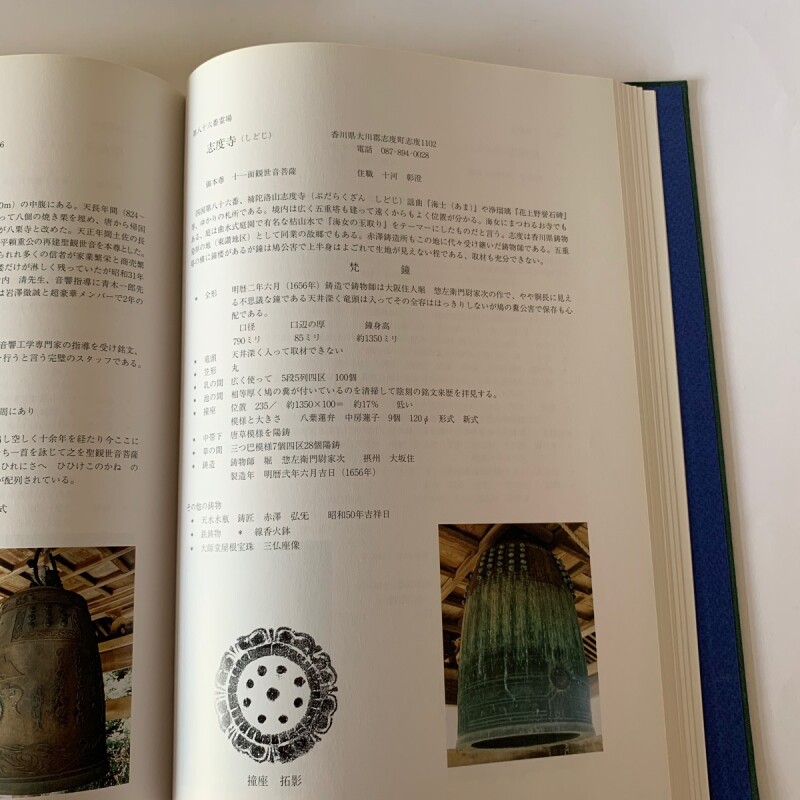 6
0m）の中腹にある。天長年間（824〜
って八個の焼き栗を埋め、唐から帰国
が八栗寺と改めた。天正年間土佐の長
平頼重公の再建聖観世音を本尊とした。
られ多くの信者が家業繁栄と商売繁
楼だけが淋しく残っていたが昭和31年
内　清先生、音響指導に青木一郎先
は岩澤徹誠と超豪華メンバーで2年の
音響工学専門家の指導を受け銘文、
行うと言う完璧のスタッフである。
周にあり
し空しく十余年を経たり今ここに
ち一首を詠じて之を聖観世音菩薩
ひれにさへ　ひびけこのかね　の
が配列されている。
式
第八十六番霊場
志度寺（しどじ）
香川県大川郡志度町志度1102
電話　087-894-0028
御本尊　十一面観世音菩薩
住職　十河　彰澄
四国第八十六番、補陀洛山志度寺（ぶだらくざん　しどじ）謡曲『海士（あま）』や浄瑠璃『花上野誉石碑』
等、ゆかりの札所である。境内は広く五重塔も建って遠くからもよく位置が分かる。海女にまつわるお寺でも
ある。庭は曲水式庭園で有名な枯山水で『海女の玉取り』をテーマーにしたものだと言う。志度は香川県鋳物
発祥の地（東講地区）として同業の故郷でもある。赤澤鋳造所もこの地に代々受け継いだ鋳物師である。五重
塔の横に鐘楼があるが鐘は鳩公害で上半身はよごれて生地が見えない程である、取材も充分できない。
梵　鐘
* 全形　明暦二年六月（1656年）鋳造で鋳物師は大阪住人堀　惣左衛門尉家次の作で、やや胴長に見え
る不思議な鐘である天井深く竜頭は入ってその全容ははっきりしないが鳩の糞公害で保存も心
配である。
口径　口辺の厚　鐘身高
790ミリ　85ミリ　約1350ミリ
* 竜頭　天井深く入って取材できない
* 笠形　丸
* 乳の間　広く使って　5段5列四区　100個
* 池の間　相等厚く鳩の糞が付いているのを清掃して陰刻の銘文来歴を拝見する。
* 撞座　位置　235／　約1350×100＝　約17％　低い
模様と大きさ　八葉蓮弁　中房蓮子　9個　120φ　形式　新式
* 中帯下　唐草模様を陽鋳
* 草の間　三つ巴模様7個四区28個陽鋳
* 鋳造　鋳物師　堀　惣左衛門尉家次　摂州　大坂住
製造年　明暦弐年六月吉日（1656年）
その他の鋳物
* 天水水瓶　鋳匠　赤澤　弘旡　昭和50年吉祥日
* 鉄鋳物　*　線香火鉢
* 大師堂屋根宝珠　三仏座像
撞座　拓影